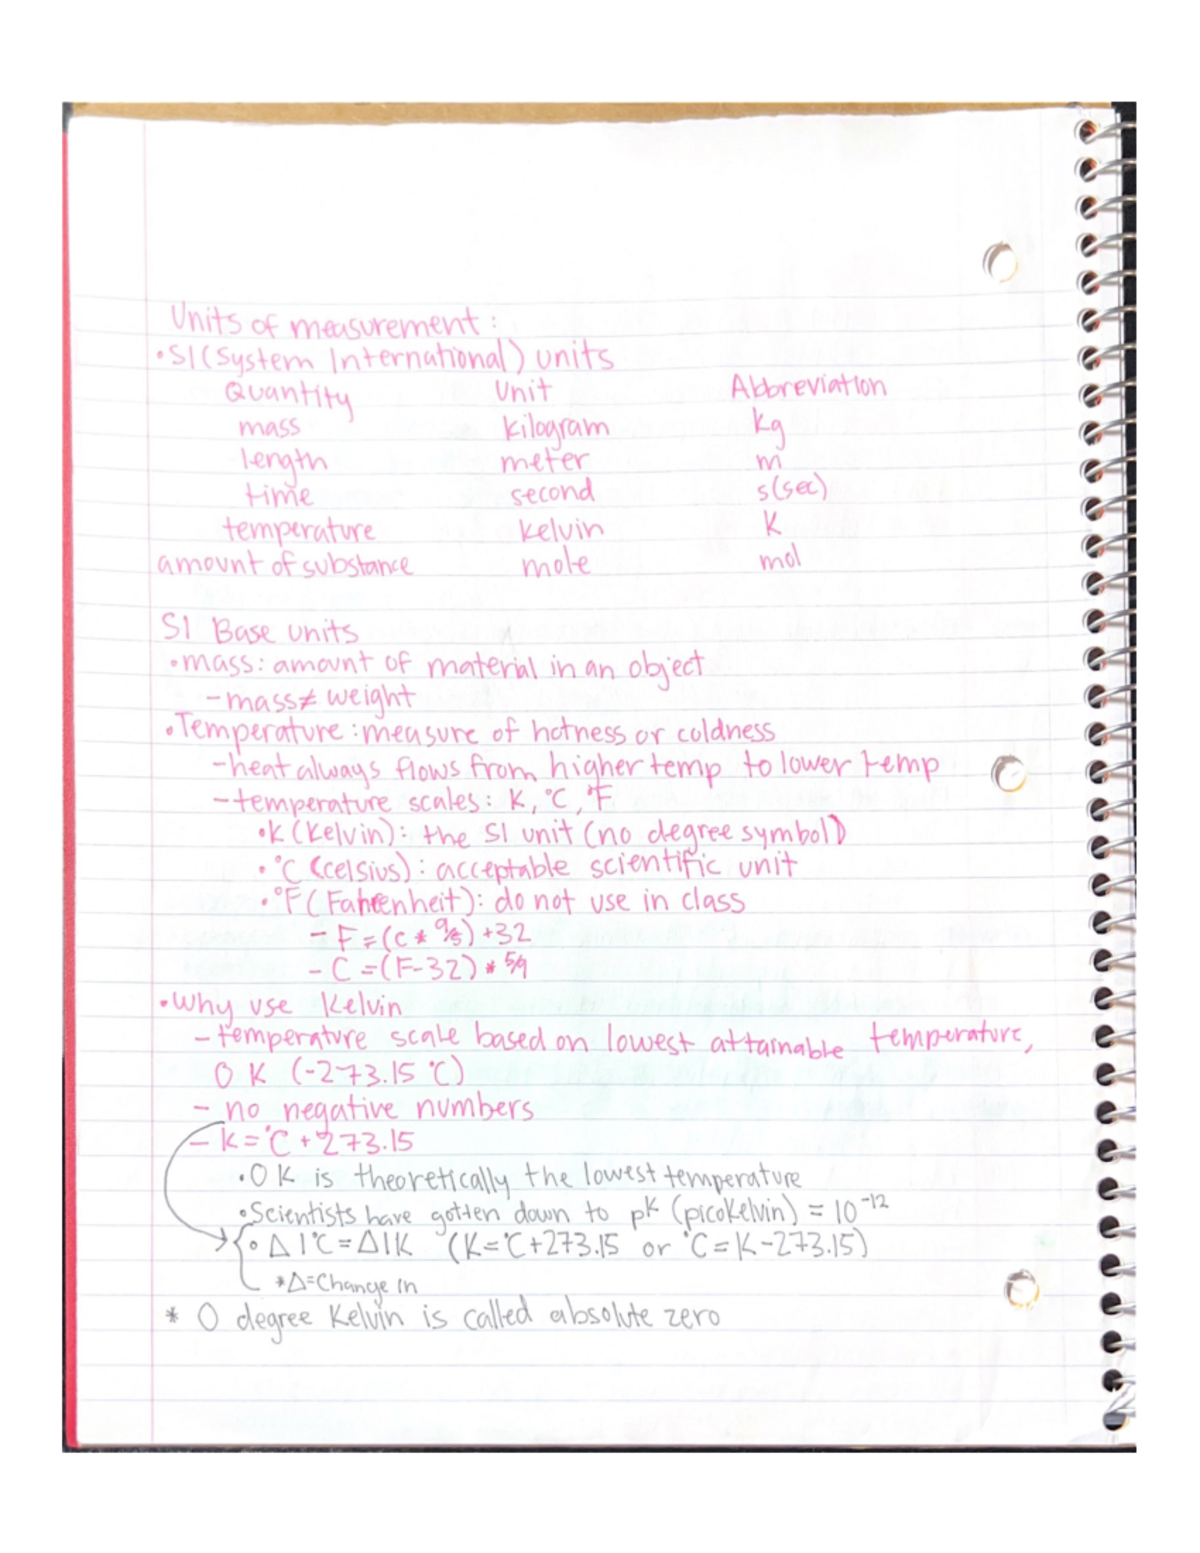 Units of measurement:
•SI (System International) units
Quantity Unit Abbreviation
mass kilogram kg
length meter m
time second s(sec)
temperature kelvin K
amount of substance mole mol
SI Base units
•mass: amount of material in an object
-mass≠ weight
•Temperature: measure of hotness or coldness
-heat always flows from higher temp to lower temp
-temperature scales: K, °C, °F
•K (Kelvin): the SI unit (no degree symbol)
•°C (celsius): acceptable scientific unit
•°F (Fahrenheit): do not use in class
- F=(C* 9/5)+32
- C=(F-32)* 5/9
•Why use Kelvin
-temperature scale based on lowest attainable temperature,
0 K (-273.15 °C)
- no negative numbers
- K=°C+273.15
•0 K is theoretically the lowest temperature
•Scientists have gotten down to pK (picoKelvin) = 10⁻¹²
• Δ1°C=Δ1K (K=°C+273.15 or °C=K-273.15)
*Δ=Change in
* 0 degree Kelvin is called absolute zero